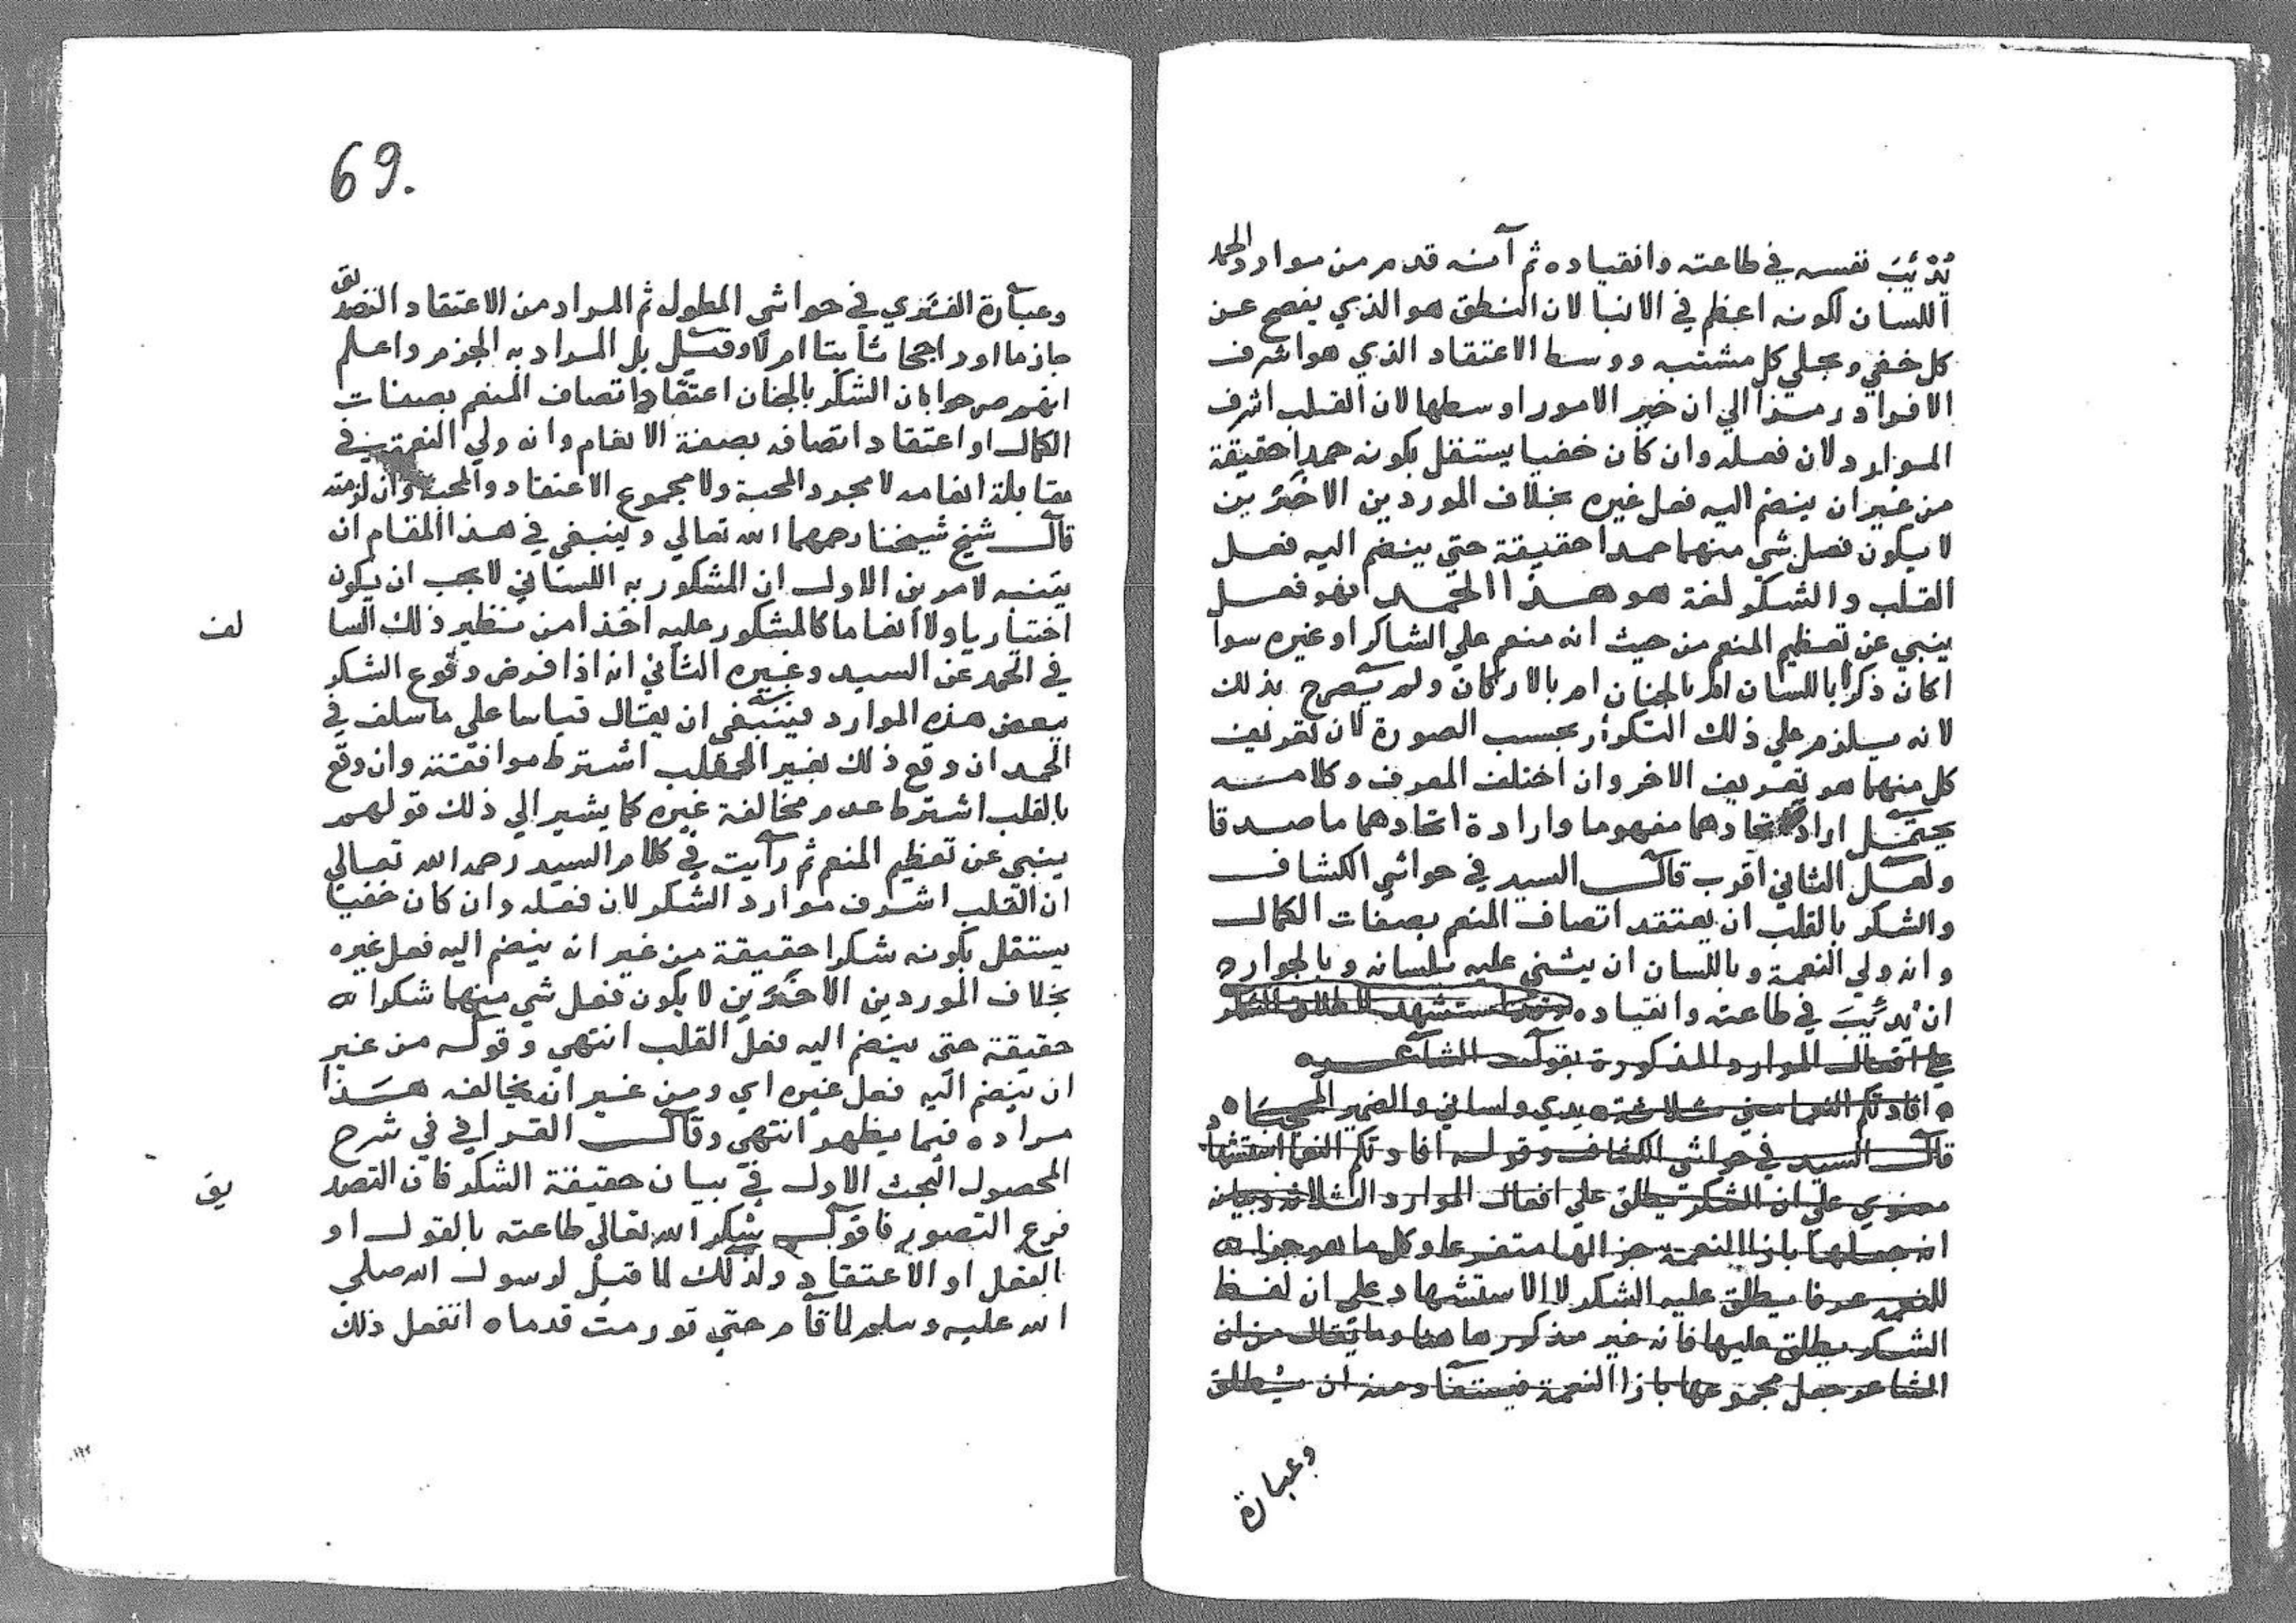 يُدْئِبَ نفسه في طاعته وانقياده ثم انه قدم من موارد الحمد
اللسان لكونه اعظم في الانبا لان النطق هو الذي يفصح عن
كل خفي ومجلي كل مشتبه ووسط الاعتقاد الذي هو اشرف
الافراد رمزا الي ان خير الامور اوسطها لان القلب اشرف
الموارد لان فعله وان كان خفيا يستقل بكونه حمدا حقيقة
من غير ان ينضم اليه فعل غيره بخلاف الموردين الاخَرَين
لا يكون فعل شي منهما حمدا حقيقة حتي ينضم اليه فعل
القلب والشكر لغة هو هذا الحمد فهو فعل
ينبي عن تعظيم المنعم من حيث انه منعم علي الشاكر او غيره سوا
اكان ذكرا باللسان ام بالجنان ام بالاركان ولم يصرح بذلك
لانه يلزم علي ذلك التكرار بحسب الصورة لان تعريف
كل منهما هو تعريف الاخر وان اختلف المعرف وكلامه
يحتمل ارادة اتحادهما مفهوما وارادة اتحادهما ماصدقا
ولعل الثاني اقرب قال السيد في حواشي الكشاف
والشكر بالقلب ان يعتقد اتصاف المنعم بصفات الكمال
وانه ولي النعمة وباللسان ان يثني عليه بلسانه وبالجوارح
ان يُدئِبَ في طاعته وانقياده وقد استشهد لاطلاق الشكر
علي افعال الموارد المذكورة بقول الشاعر
افادتكم النعما مني ثلاثة يدي ولساني والضمير المحجبا
قال السيد في حواشي الكشاف وقوله افادتكم النعما استشهاد
معنوي علي ان الشكر يطلق علي افعال الموارد الثلاثة وبيان
انه جعلها بازا النعمة جزا لها متفرعا وكل ما هو جزا
للنعمة عرفا يطلق عليه الشكر لا الاستشهاد علي ان لفظ
الشكر يطلق عليها فانه غير مذكور هاهنا وما يقال من ان
الشاعر جعل مجموعها بازا النعمة فيستفاد منه ان يُطلق
وعبارة
69.
وعبارة الفنري في حواشي المطول ثم المراد من الاعتقاد التصديق
جازما او راجحا ثابتا ام لا وقيل بل المراد به الجزم واعلم
انهم صرحوا بان الشكر بالجنان اعتقاد اتصاف المنعم بصفات
الكمال او اعتقاد اتصافه بصفة الانعام وانه ولي النعمة في
مقابلة انعامه لا مجرد المحبة ولا مجموع الاعتقاد والمحبة وان لزمته
قال شيخ شيخنا رحمهما الله تعالي وينبغي في هذا المقام ان
يتنبه لامرين الاول ان المشكور به اللساني لا يجب ان يكون
اختياريا ولا انعاما كالمشكور عليه اخذا من نظير ذلك السا لف
في الحمد عن السيد وغيره الثاني انه اذا فرض وقوع الشكر
ببعض هذه الموارد فينبغي ان يقال قياسا علي ما سلف في
الحمد ان وقع ذلك بغير القلب اشترط موافقته وان وقع
بالقلب اشترط عدم مخالفة غيره كما يشير الي ذلك قولهم
ينبي عن تعظيم المنعم ثم رايت في كلام السيد رحمه الله تعالي
ان القلب اشرف موارد الشكر لان فعله وان كان خفيا
يستقل بكونه شكرا حقيقة من غير ان ينضم اليه فعل غيره
بخلاف الموردين الاخَرَين لا يكون فعل شي منهما شكرا
حقيقة حتي ينضم اليه فعل القلب انتهي وقوله من غير
ان ينضم اليه فعل غيره اي ومن غير ان يخالفه هذا
مراده فيما يظهر انتهي وقال القرافي في شرح
المحصول البحث الاول في بيان حقيقة الشكر فان التصد يق
فرع التصور فاقول شكر الله تعالي طاعته بالقول او
الفعل او الاعتقاد ولذلك لما قيل لرسول الله صلي
الله عليه وسلم لما قام حتي تورمت قدماه اتفعل ذلك